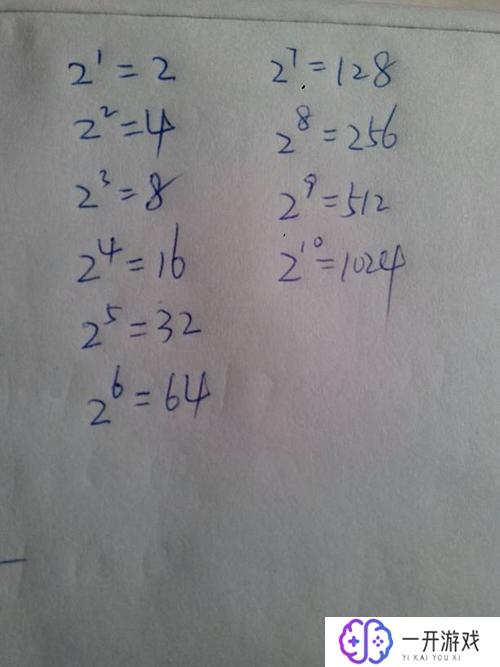 2¹=2
2²=4
2³=8
2⁴=16
2⁵=32
2⁶=64
2⁷=128
2⁸=256
2⁹=512
2¹⁰=1024
一开游戏
YI KAI YOU XI